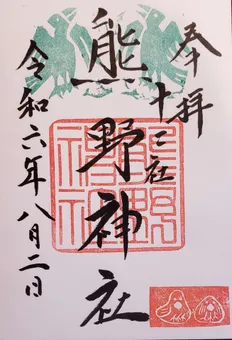 奉拝
十二社
熊野神社
令和六年八月二日
熊野神社